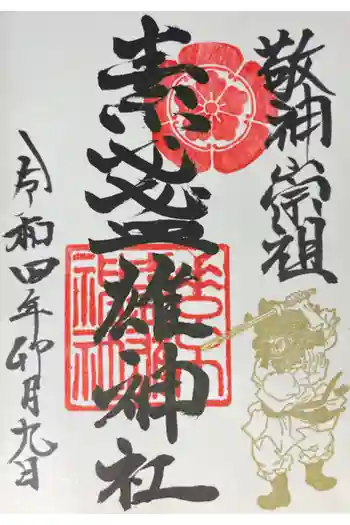 敬神崇祖
素盞雄神社
令和四年卯月九日